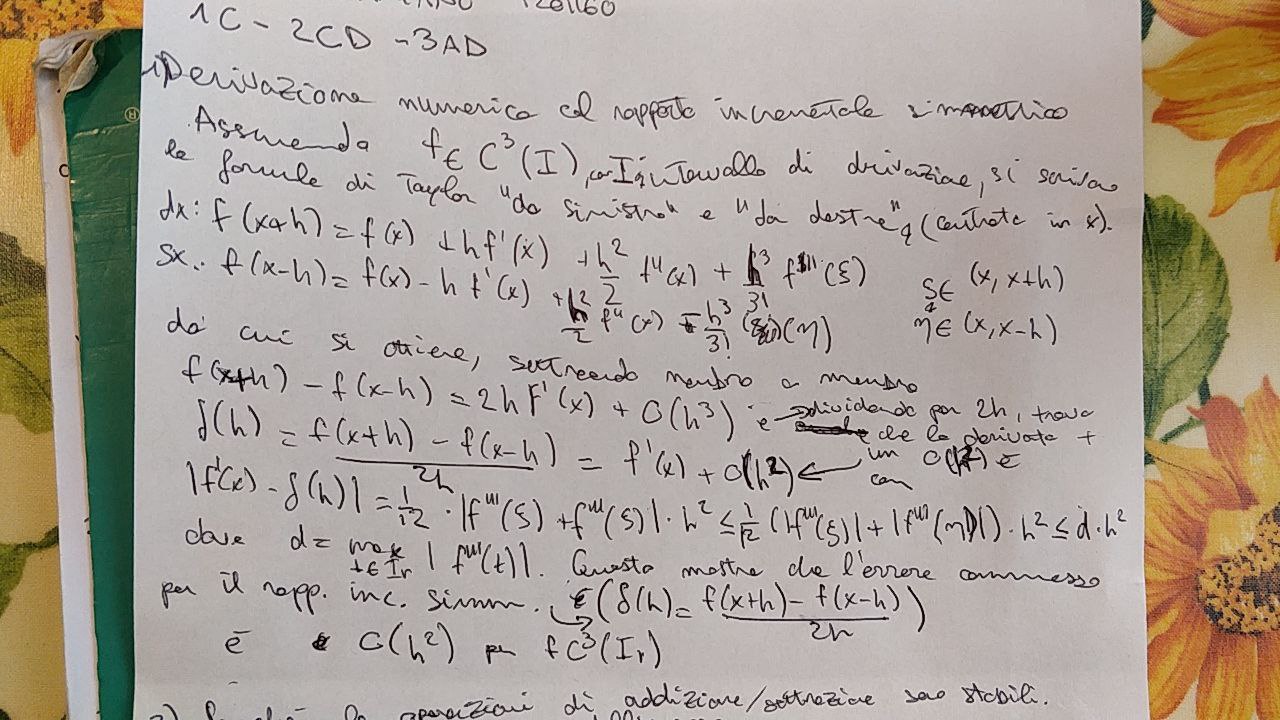 1201160
1C - 2CD - 3AD
1) Derivazione numerica col rapporto incrementale simmetrico
Assumendo f ∈ C³(I), con I intervallo di derivazione, si scrivano
le formule di Taylor "da sinistra" e "da destra" (centrate in x).
dx: f(x+h) = f(x) + hf'(x) + h²/2 f''(x) + h³/3! f'''(ξ) ξ ∈ (x, x+h)
sx: f(x-h) = f(x) - hf'(x) + h²/2 f''(x) - h³/3! (η) η ∈ (x, x-h)
da cui si ottiene, sottraendo membro a membro
f(x+h) - f(x-h) = 2hf'(x) + O(h³) e dividendo per 2h, trova
che la derivata +
δ(h) = f(x+h) - f(x-h) / 2h = f'(x) + O(h²) ← un O(h²) e
con
|f'(x) - δ(h)| = 1/12 · |f'''(ξ) + f'''(ξ)| · h² ≤ 1/12 (|f'''(ξ)| + |f'''(η)|) · h² ≤ d · h²
dove d = max t∈Ir |f'''(t)|. Questo mostra che l'errore commesso
per il rapp. inc. simm. (δ(h) = f(x+h) - f(x-h) / 2h)
è O(h²) per f C³(Ir)
2) le operazioni di addizione/sottrazione sono stabili.